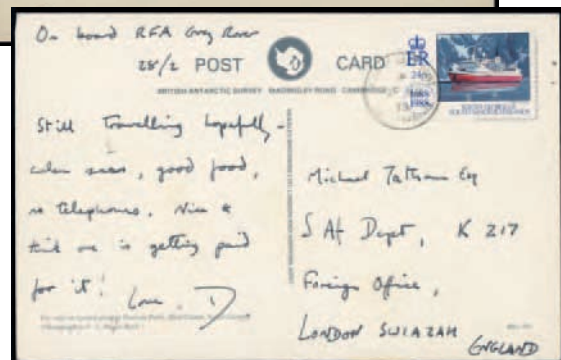 On board RFA Grey Rover
28/2 POST CARD
BRITISH ANTARCTIC SURVEY MADINGLEY ROAD CAMBRIDGE
E R
24p
SOUTH GEORGIA &
Still travelling hopefully -
calm seas, good food,
no telephones. Nice to
think one is getting paid
for it!
Love, D
Michael Tatham Esq
S Af Dept, K 217
Foreign Office,
LONDON SW1A 2AH
ENGLAND